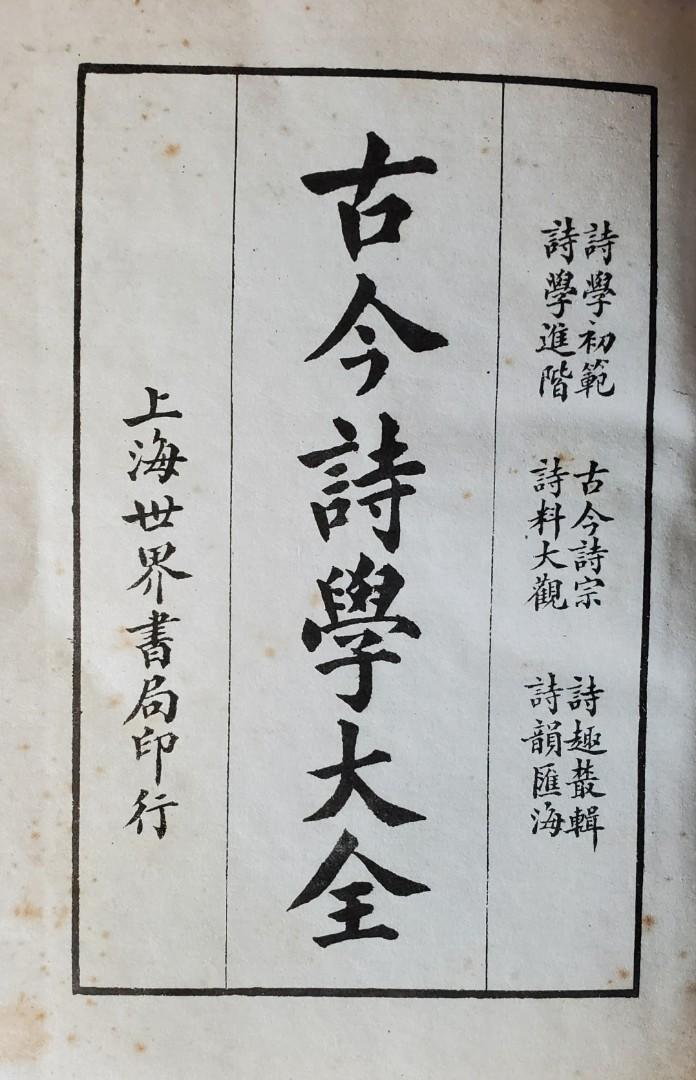 詩學初範
詩學進階
古今詩宗
詩料大觀
詩趣叢輯
詩韻匯海
古今詩學大全
上海世界書局印行